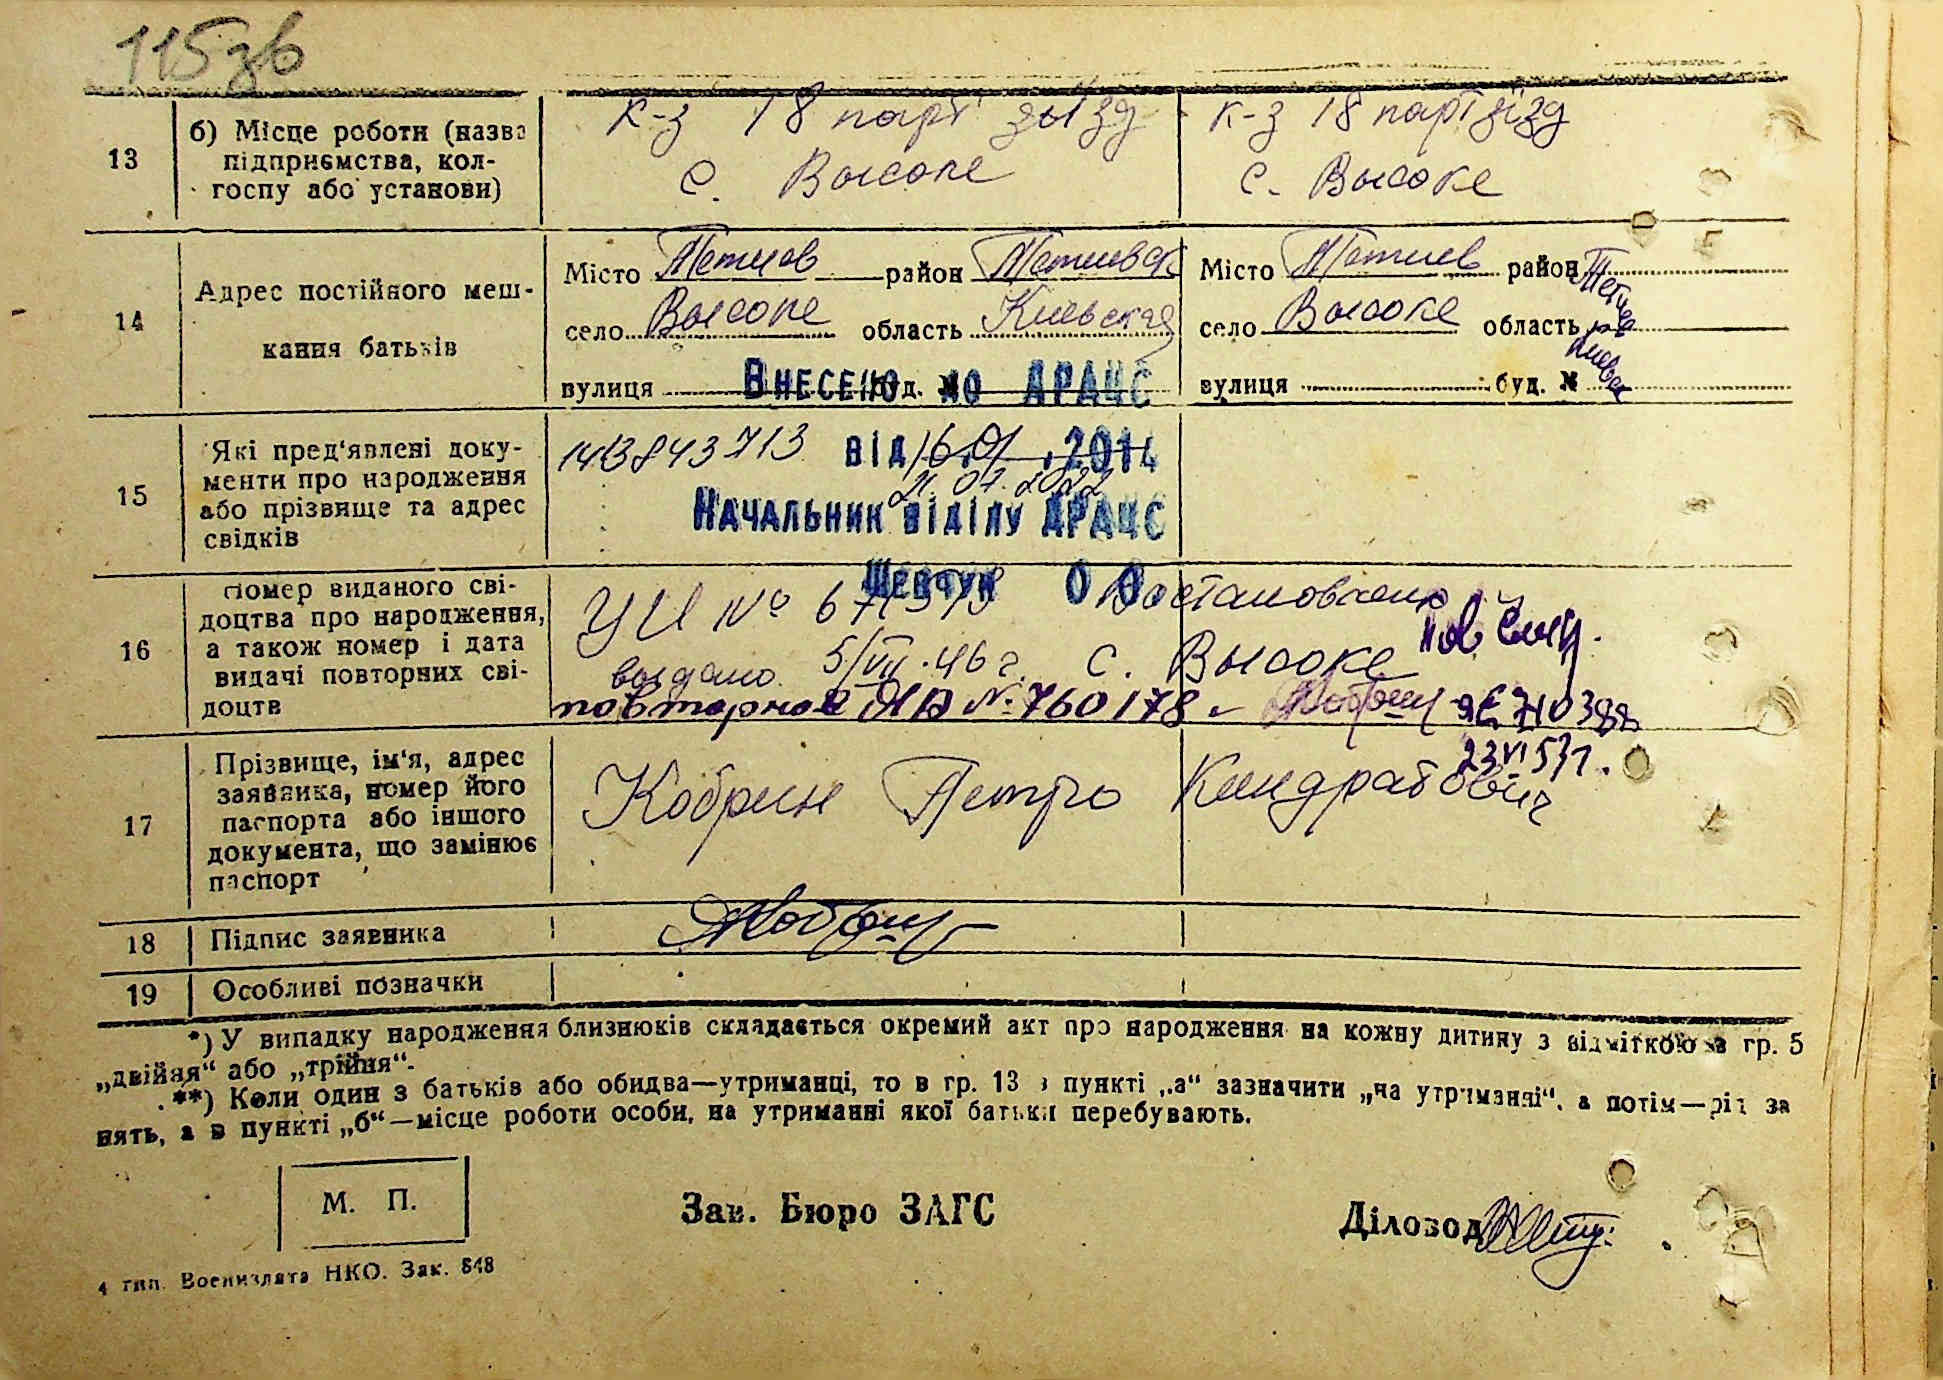 115зв
13
б) Місце роботи (назва
підприємства, кол-
госпу або установи)
к-з 18 парт зыізд
с. Высоке
к-з 18 парт зїзд
с. Высоке
14
Адрес постійного меш-
кання батьків
Місто Тетиев район Тетиевск
село Высоке область Киевская
вулиця буд. №
Місто Тетиев район Тетиев
село Высоке область Киевск
вулиця буд. №
15
Які пред'явлені доку-
менти про народження
або прізвище та адрес
свідків
Внесено до ДРАЦС
143843713 від 16.01.2014
21.07.2022
Начальник відділу ДРАЦС
Шевчук О О
16
Номер виданого сві-
доцтва про народження,
а також номер і дата
видачі повторних сві-
доцтв
УИ № Востановлено
выдано 5/VII.46 г. с. Высоке
повторное ЯД №760178
ЯЕ 710388
23 VI 53 г.
17
Прізвище, ім'я, адрес
заявника, номер його
паспорта або іншого
документа, що замінює
паспорт
Кобрин Петро Киндратович
18
Підпис заявника
19
Особливі позначки
*) У випадку народження близнюків складається окремий акт про народження на кожну дитину з відміткою в гр. 5
„двійня“ або „трійня“.
**) Коли один з батьків або обидва—утриманці, то в гр. 13 в пункті „а“ зазначити „на утриманні“, а потім—рід за
нять, а в пункті „б“—місце роботи особи, на утриманні якої батьки перебувають.
М. П.
Зав. Бюро ЗАГС
Діловод
4 тип. Воениздата НКО. Зак. 848